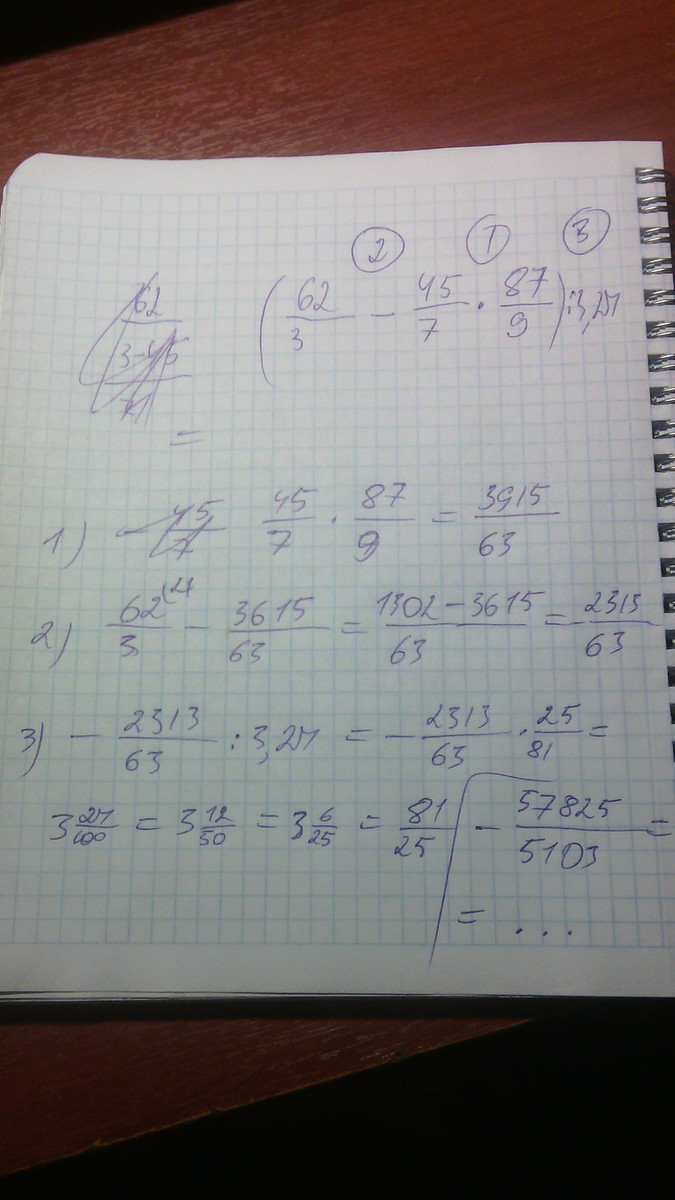 ② ① ③
(62/3 − 45/7 · 87/9) : 3,24
=
1) 45/7 · 87/9 = 3915/63
2) 62/3 (21 − 3615/63 = 1302 − 3615/63 = − 2313/63
3) − 2313/63 : 3,24 = − 2313/63 · 25/81 =
3 24/100 = 3 12/50 = 3 6/25 = 81/25
− 57825/5103 =
= ...